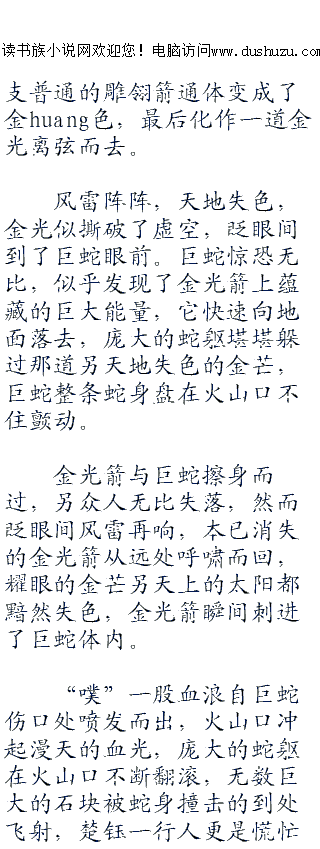 读书族小说网欢迎您！电脑访问www.dushuzu.com
支普通的雕翎箭通体变成了
金huang色，最后化作一道金
光离弦而去。
风雷阵阵，天地失色，
金光似撕破了虚空，眨眼间
到了巨蛇眼前。巨蛇惊恐无
比，似乎发现了金光箭上蕴
藏的巨大能量，它快速向地
面落去，庞大的蛇躯堪堪躲
过那道另天地失色的金芒，
巨蛇整条蛇身盘在火山口不
住颤动。
金光箭与巨蛇擦身而
过，另众人无比失落，然而
眨眼间风雷再响，本已消失
的金光箭从远处呼啸而回，
耀眼的金芒另天上的太阳都
黯然失色，金光箭瞬间刺进
了巨蛇体内。
“噗”一股血浪自巨蛇
伤口处喷发而出，火山口冲
起漫天的血光，庞大的蛇躯
在火山口不断翻滚，无数巨
大的石块被蛇身撞击的到处
飞射，楚钰一行人更是慌忙